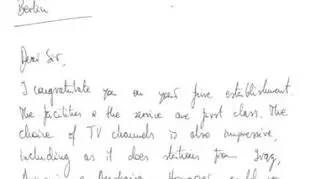 Berlin
Dear Sir,
I congratulate you on your fine establishment.
The facilities & the service are first class. The
choice of TV channels is also impressive,
including as it does stations from Iraq,
However, could